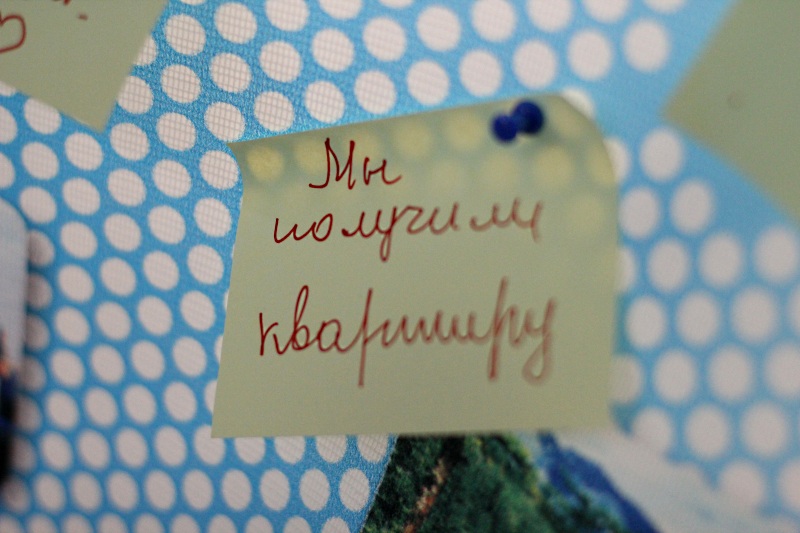 Мы
получили
квартиру